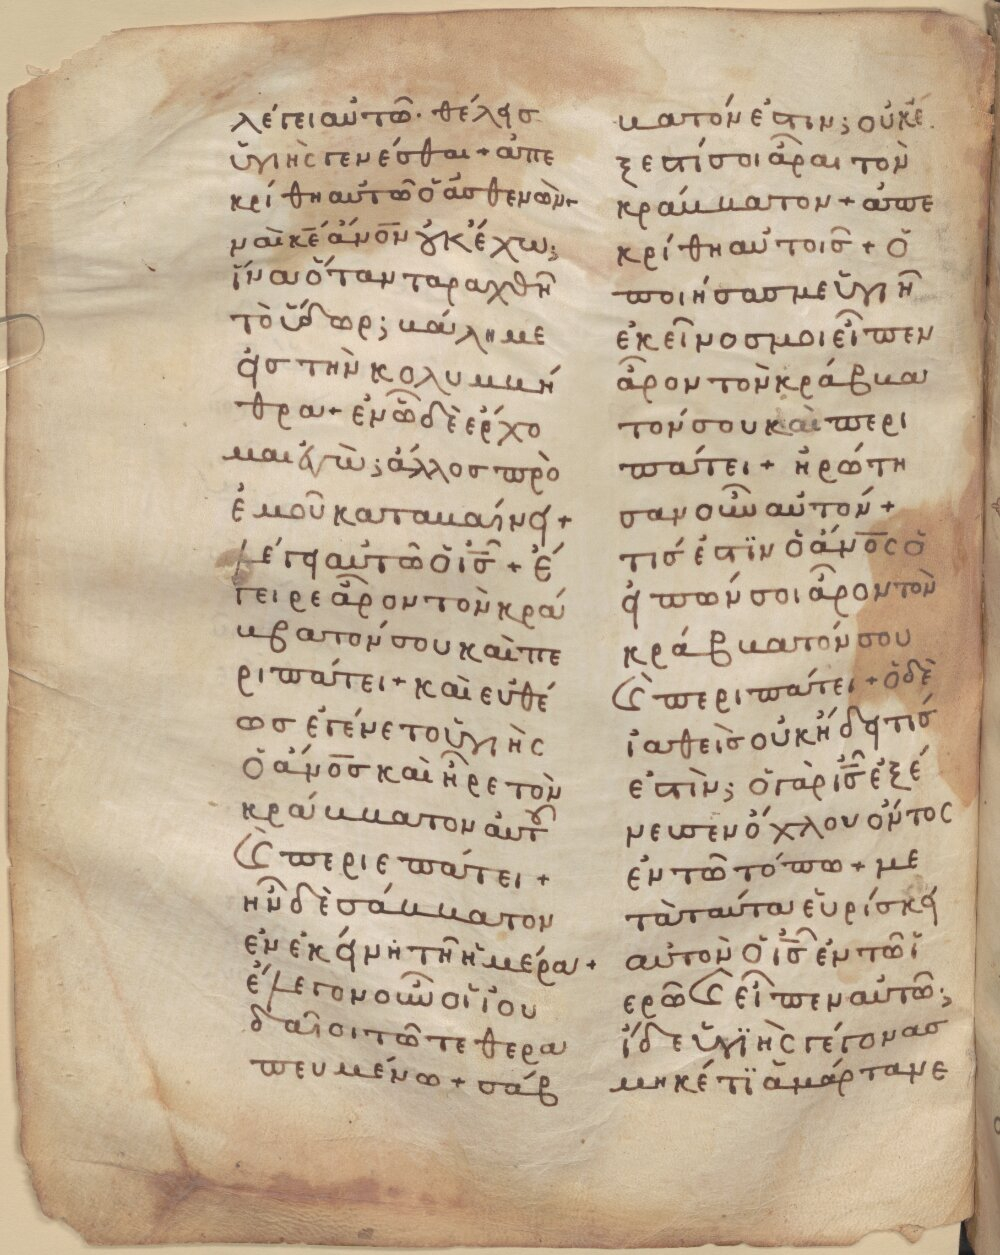 λέγει αὐτῶ· θέλεισ
ὑγιὴς γενέσθαι + ἀπε
κρίθη αὐτῶ ὁ ἀσθενῶν +
ναὶ κ̅ε̅ ἄν̅ο̅ν οὐκ ἔχω;
ἵνα ὅταν ταραχθῆ
τὸ ὕδωρ; βάλη με
εἰσ τὴν κολυμβή
θρα + ἐν ὧ δὲ ἔρχο
μαι ἐγὼ; ἄλλοσ πρὸ
ἐμοῦ καταβαίνει +
λέγει αὐτῶ ὁ ι̅σ̅ + ἔ
γειρε ἆρον τὸν κρά
βατόν σου καὶ πε
ριπάτει + καὶ εὐθέ
ωσ ἐγένετο ὑγιὴς
ὁ ἄν̅ο̅σ̅ καὶ ἦρε τὸν
κράββατον αὐτοῦ
ϗ περιεπάτει +
ἦν δὲ σάββατον
ἐν ἐκείνη τῆ ἡμέρα +
ἔλεγον οὖν οἱ ἰου
δαῖοι τῶ τεθερα
πευμένω + σάβ
βατόν ἐστιν; οὐκ έ
ξεστί σοι ἆραι τὸν
κράββατον + ἀπε
κρίθη αὐτοισ + ὁ
ποιήσασ με ὑγιῆ
ἐκεῖνοσ μοι εἶπεν
ἆρον τὸν κράββα
τόν σου καὶ περι
πάτει + ἠρώτη
σαν οὖν αὐτόν +
τισ ἐστϊν ὁ ἄν̅ο̅ς ὁ
εἰπών σοι ἆρον τὸν
κράββατόν σου
ϗ περιπάτει + ὁ δὲ
ἰαθεὶσ οὐκ ἤδει τισ
ἐστὶν; ὁ γὰρ ι̅σ̅ ἐξέ
νευσεν ὄχλου ὄντος
ἐν τῶ τόπω + με
τὰ ταύτα εὑρίσκει
αὐτὸν ὁ ι̅σ̅ ἐν τῶ ἱ
ερῶ ϗ εἶπεν αὐτῶ;
ἴδε ὑγϊὴς γέγονασ
μηκέτϊ ἁμάρτανε